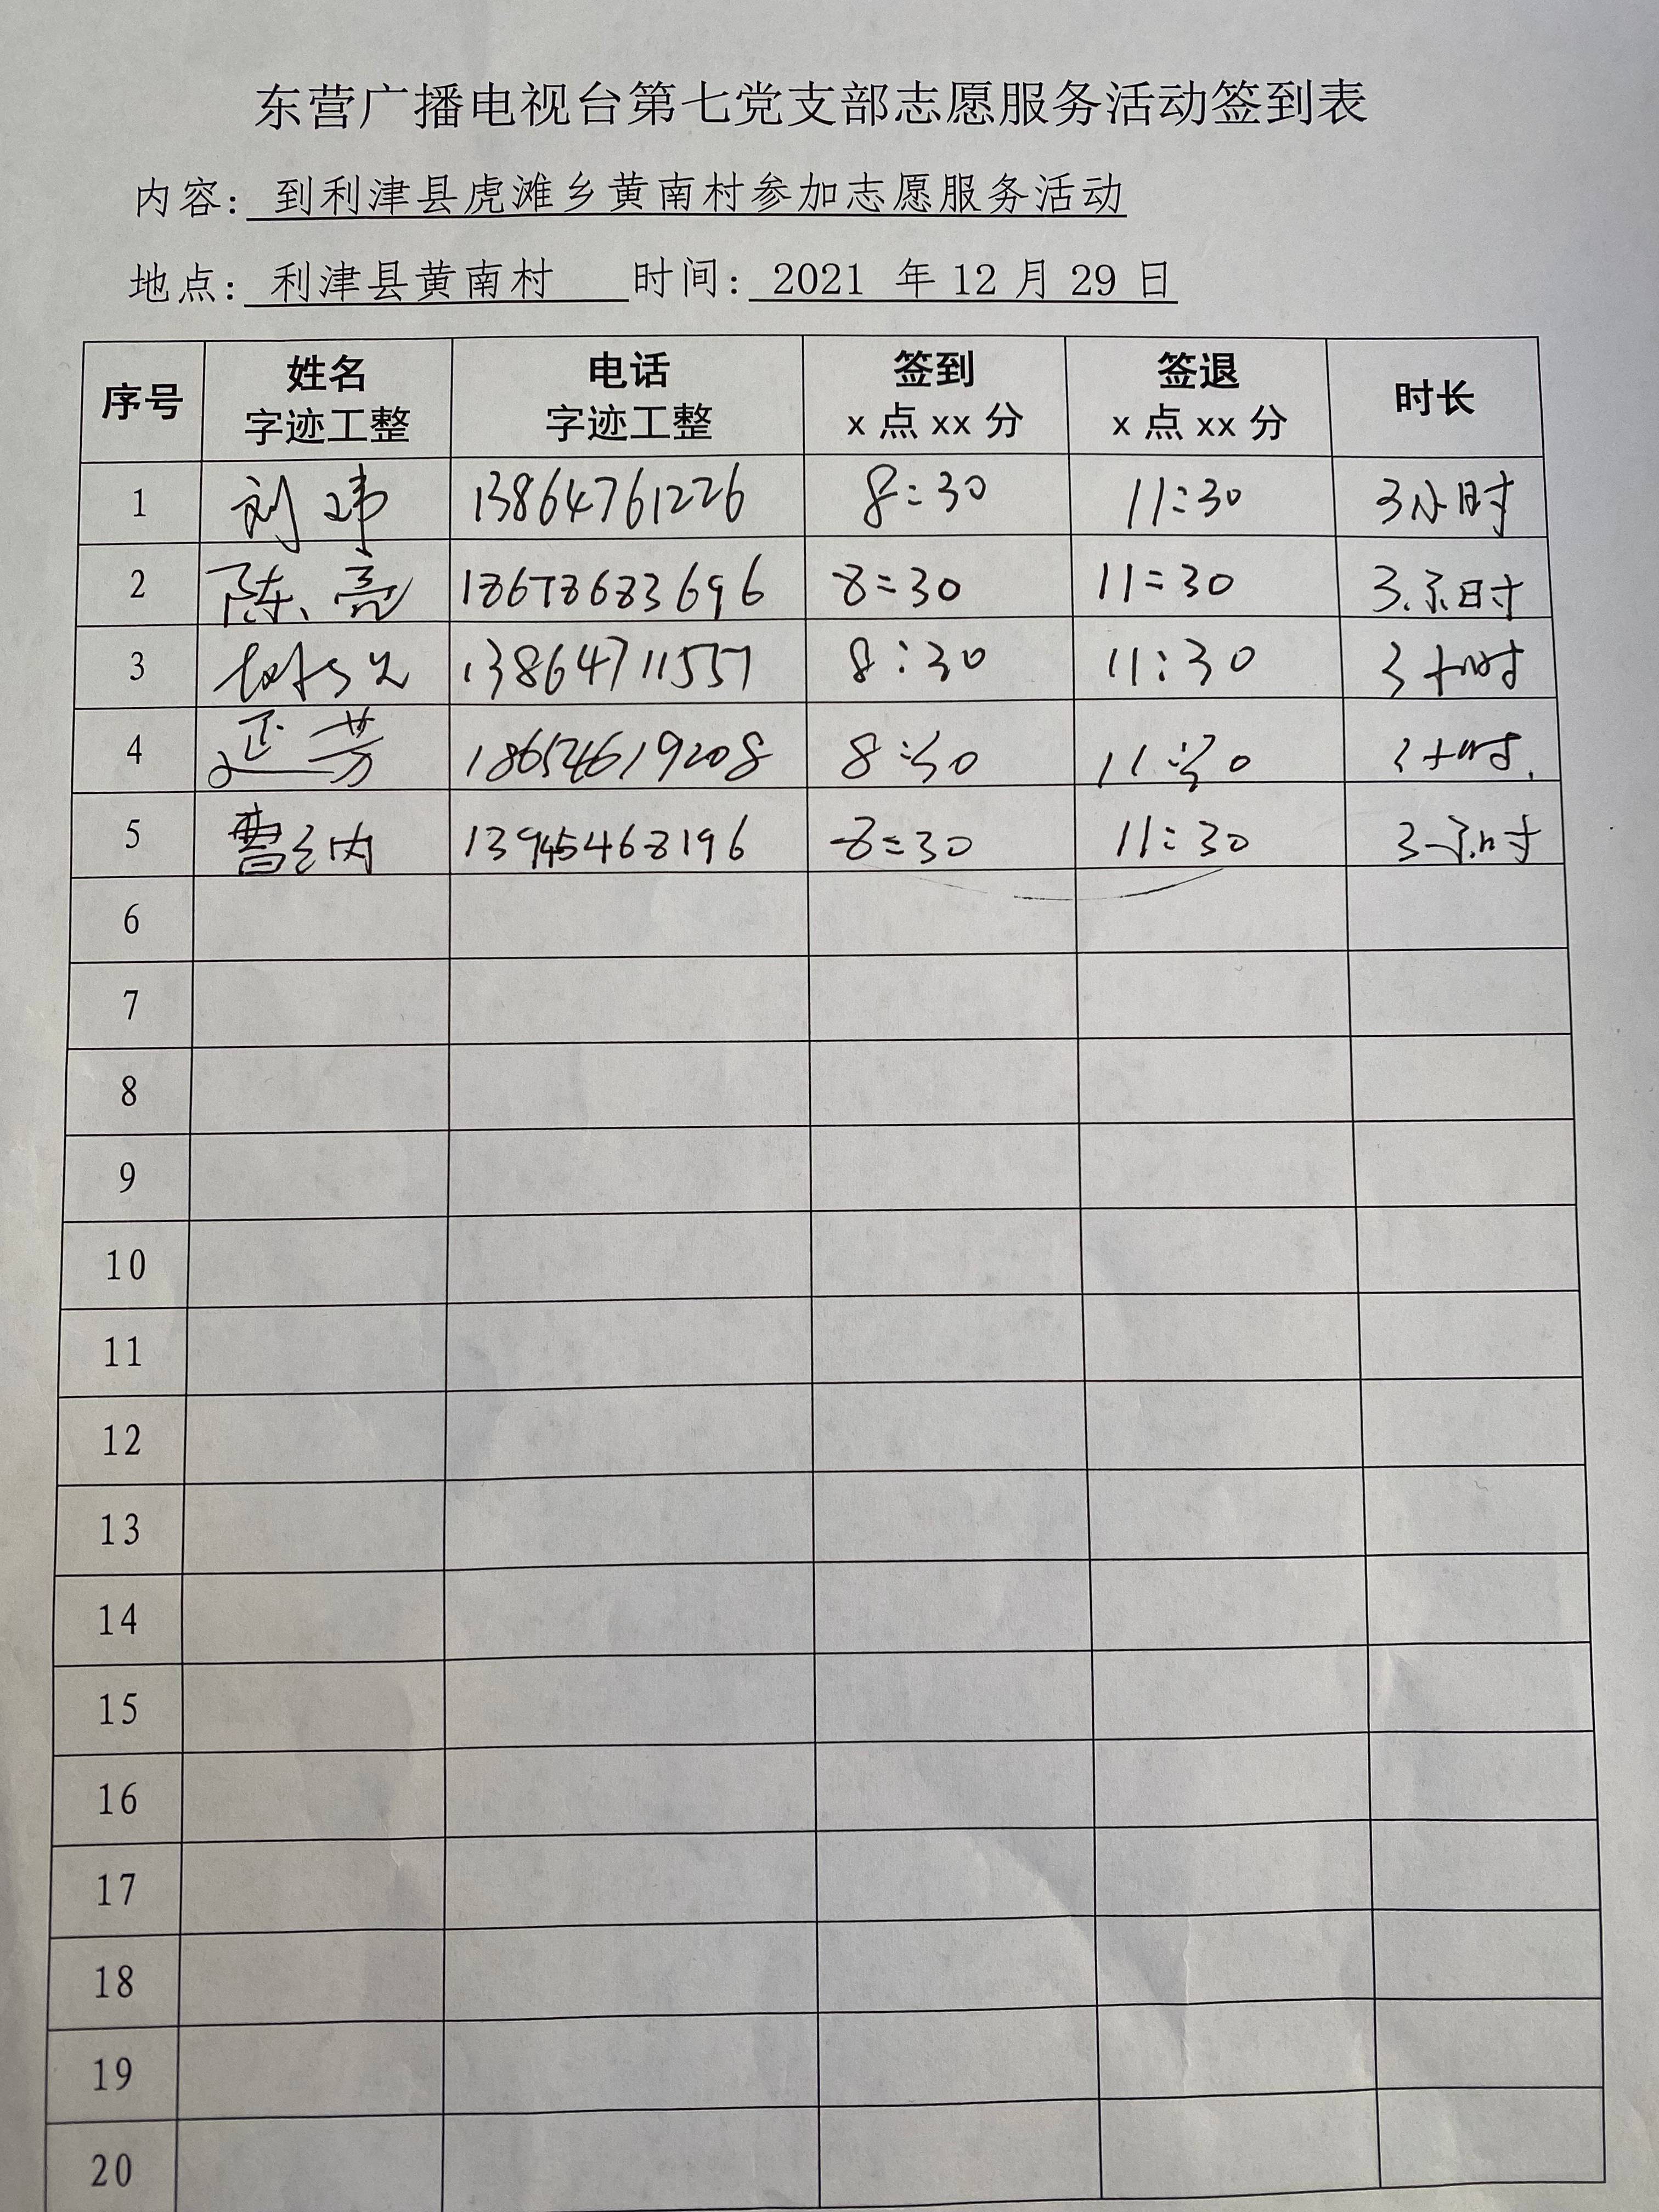 东营广播电视台第七党支部志愿服务活动签到表
内容: 到利津县虎滩乡黄南村参加志愿服务活动
地点: 利津县黄南村 时间: 2021 年 12 月 29 日
序号 姓名 字迹工整 电话 字迹工整 签到 x 点 xx 分 签退 x 点 xx 分 时长
1 刘玮 13864761226 8:30 11:30 3小时
2 陈亮 18678683696 8:30 11:30 3小时
3 13864711557 8:30 11:30 3小时
4 孟芳 18654619208 8:30 11:30 3小时
5 曹 13945468196 8:30 11:30 3小时
6
7
8
9
10
11
12
13
14
15
16
17
18
19
20